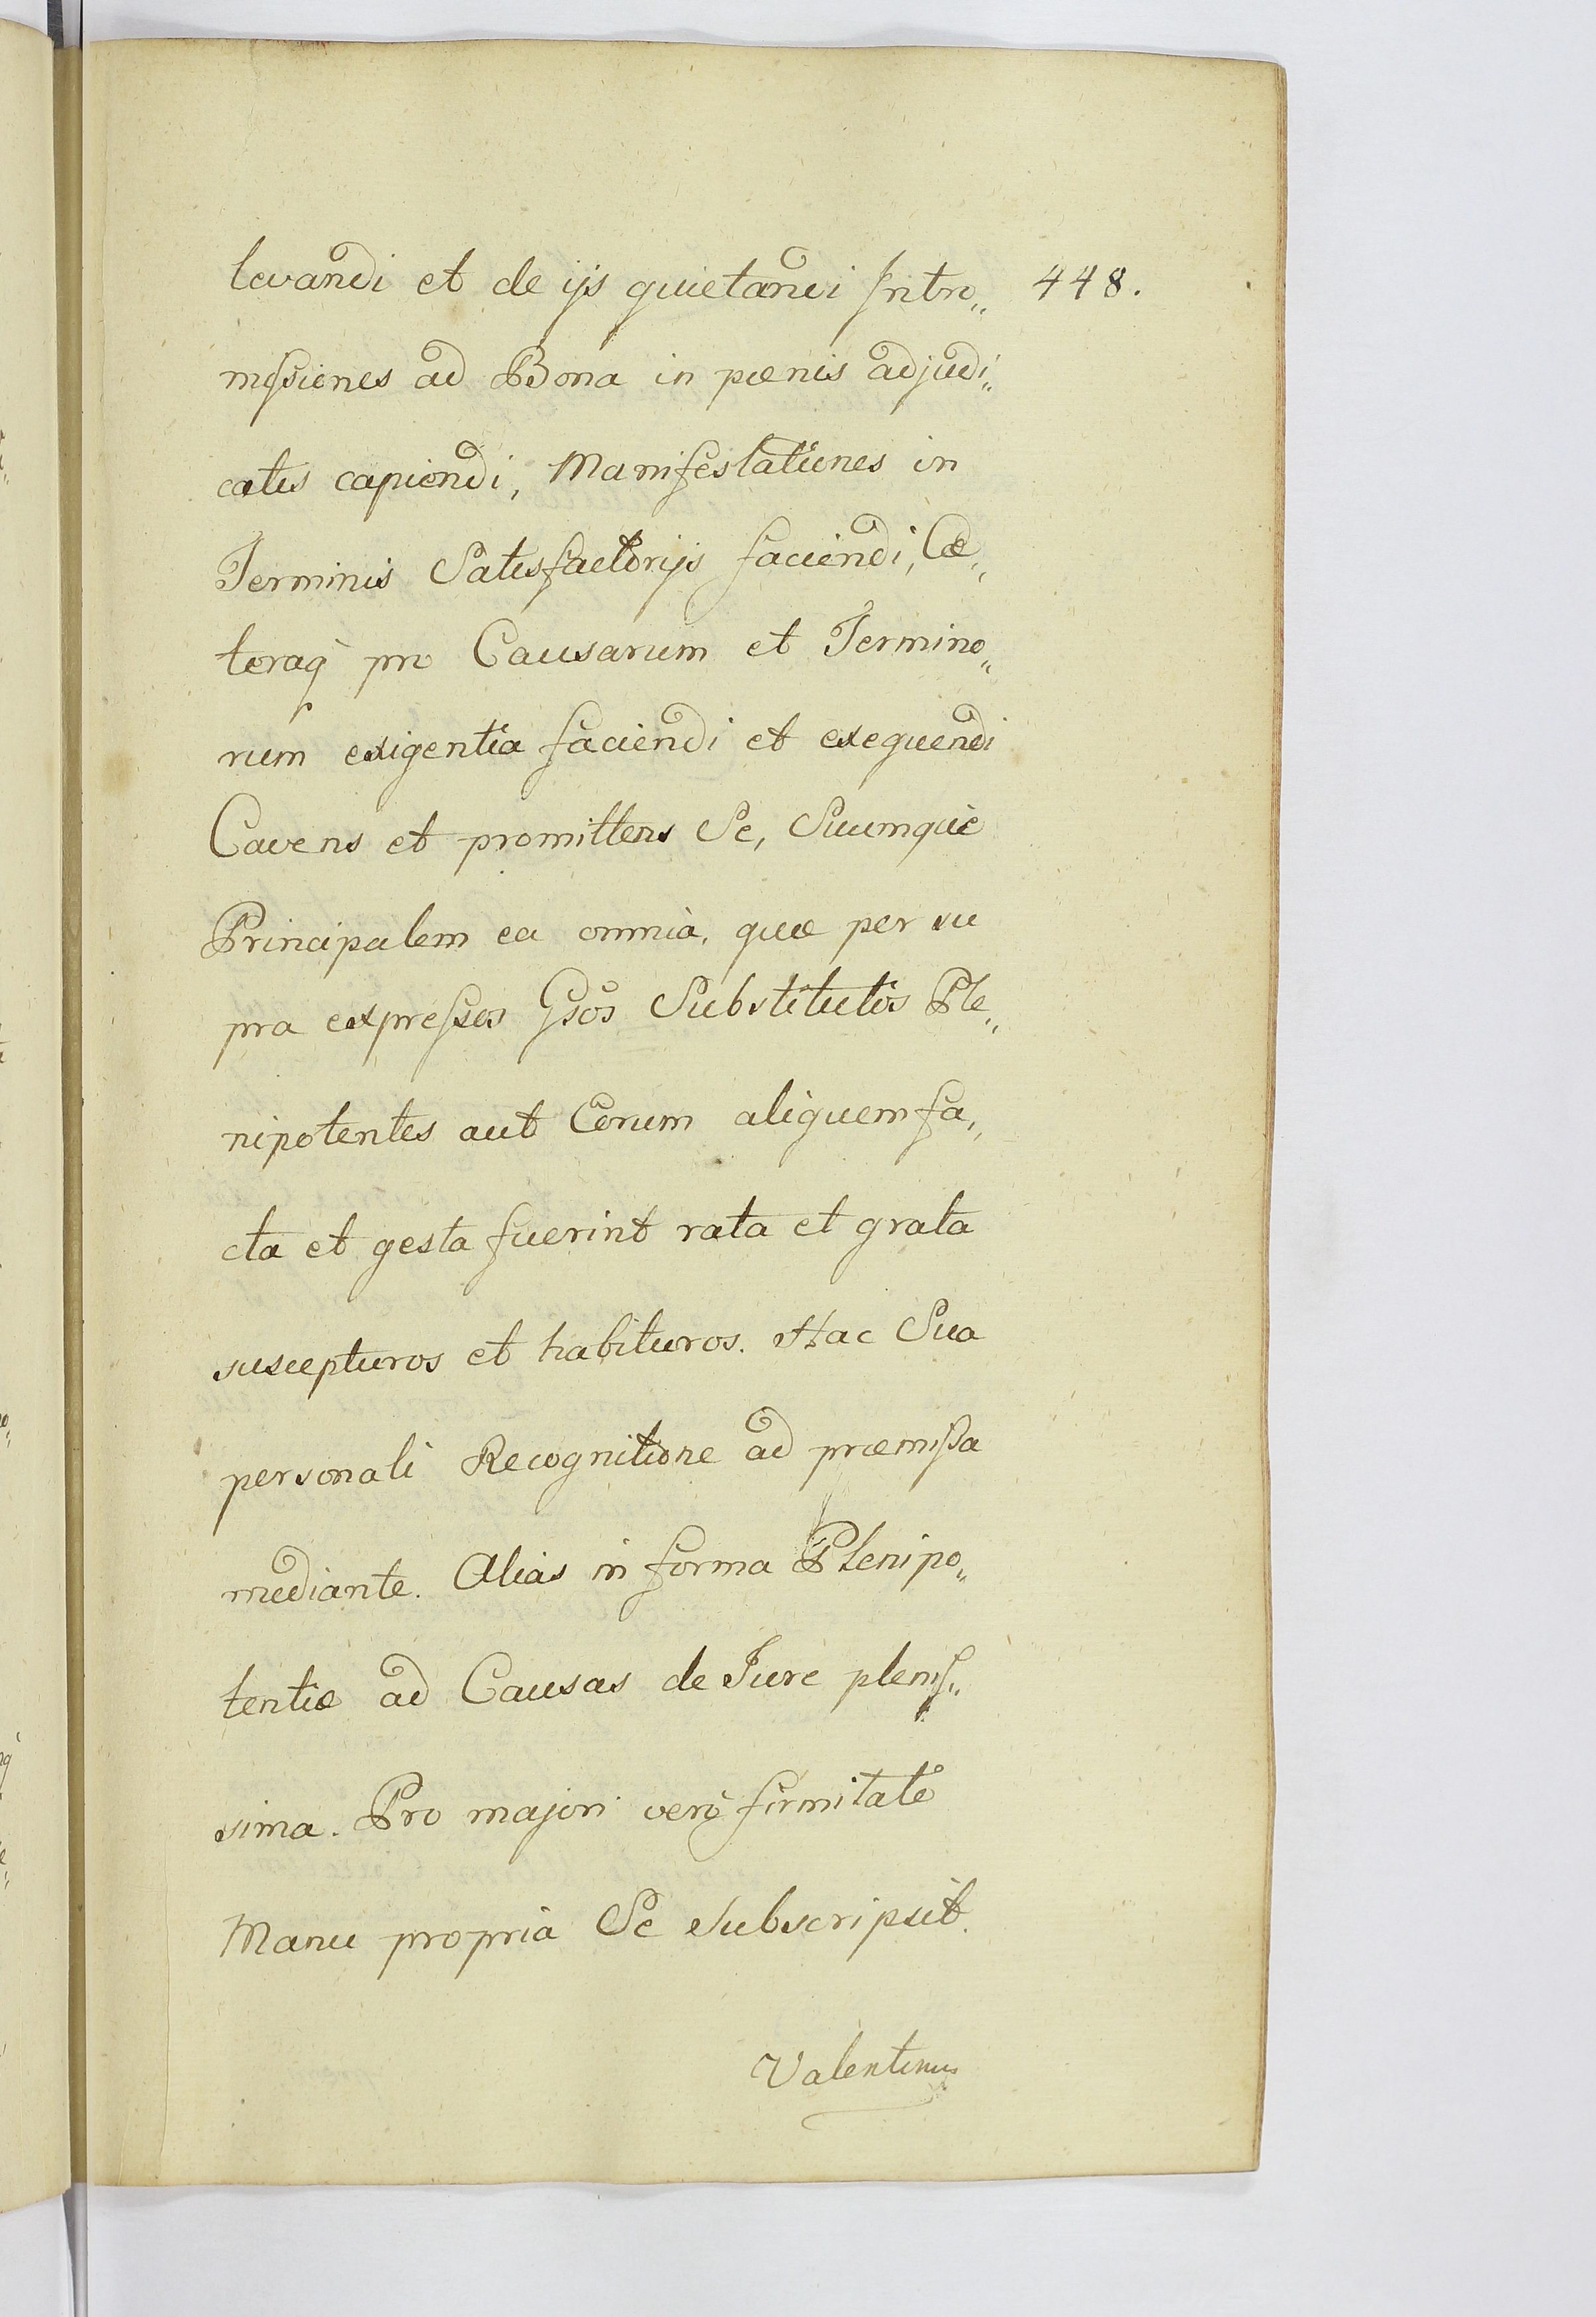 levandi et de ijs quietandi Intro„ 448.
mißiones ad Bona in pœnis adjudi„
catis capiendi, Manifestationes in
Terminis Satisfactorijs faciendi, Cæ„
teraq̀ pro Causarum et Termino„
rum exigentia faciendi et exequendi
Cavens et promittens Se, Suumquè
Principalem ea omnia, quæ per su
pra expreßos Gsos Substitutos Ple„
nipotentes aut Eorum aliquem fa„
cta et gesta fuerint rata et grata
suscepturos et habituros. Hac Sua
personali Recognitione ad præmißa
mediante. Alias in forma Plenipo„
tentiæ ad Causas de Jure plenis„
sima. Pro majori verò firmitate
Manu propria Se subscripsit.
Valentinus